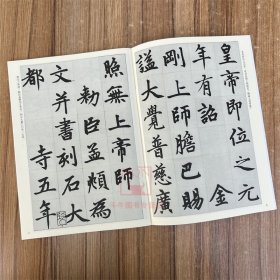 皇帝即位之元
年有詔金
剛上師膽巴賜
謚大覺普慈廣
照無上帝師
勅臣孟頫為
文并書刻石大
都寺五年